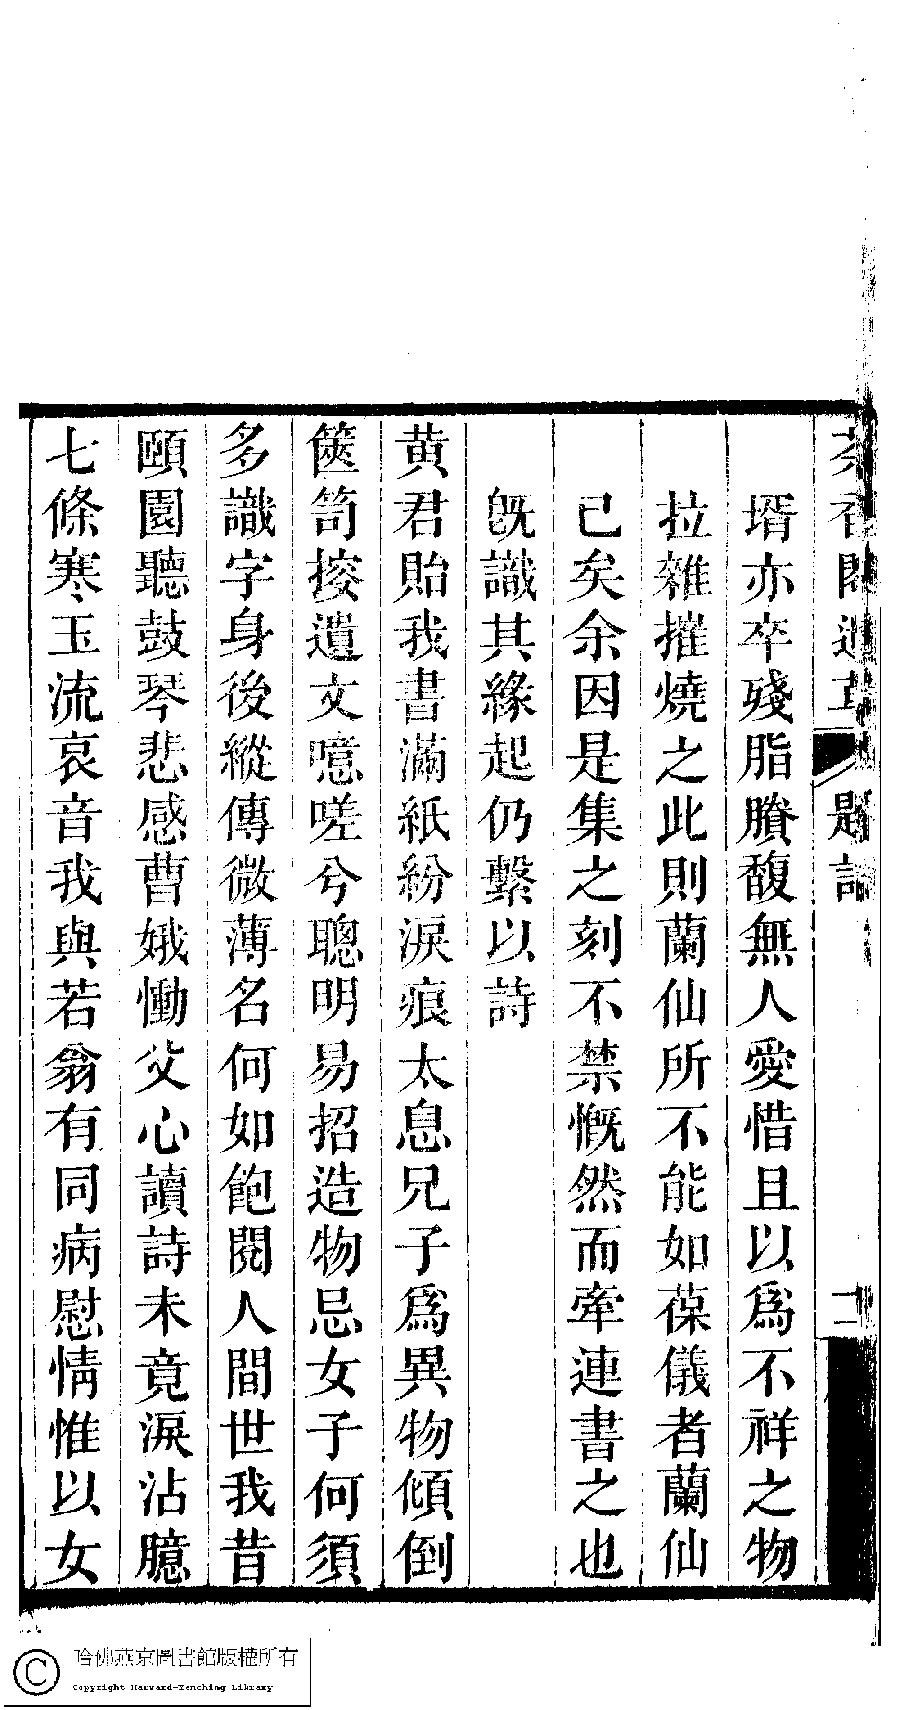 茶香閣遺草 題詞 二
壻亦卒殘脂賸馥無人愛惜且以爲不祥之物
拉雜摧燒之此則蘭仙所不能如葆儀者蘭仙
已矣余因是集之刻不禁慨然而牽連書之也
旣識其緣起仍繫以詩
黃君貽我書滿紙紛淚痕太息兄子爲異物傾倒
篋笥按遺文噫嗟兮聰明易招造物忌女子何須
多識字身後縱傳微薄名何如飽閱人間世我昔
頤園聽鼓琴悲感曹娥慟父心讀詩未竟淚沾臆
七條寒玉流哀音我與若翁有同病慰情惟以女
哈佛燕京圖書館版權所有
Copyright Harvard-Yenching Library